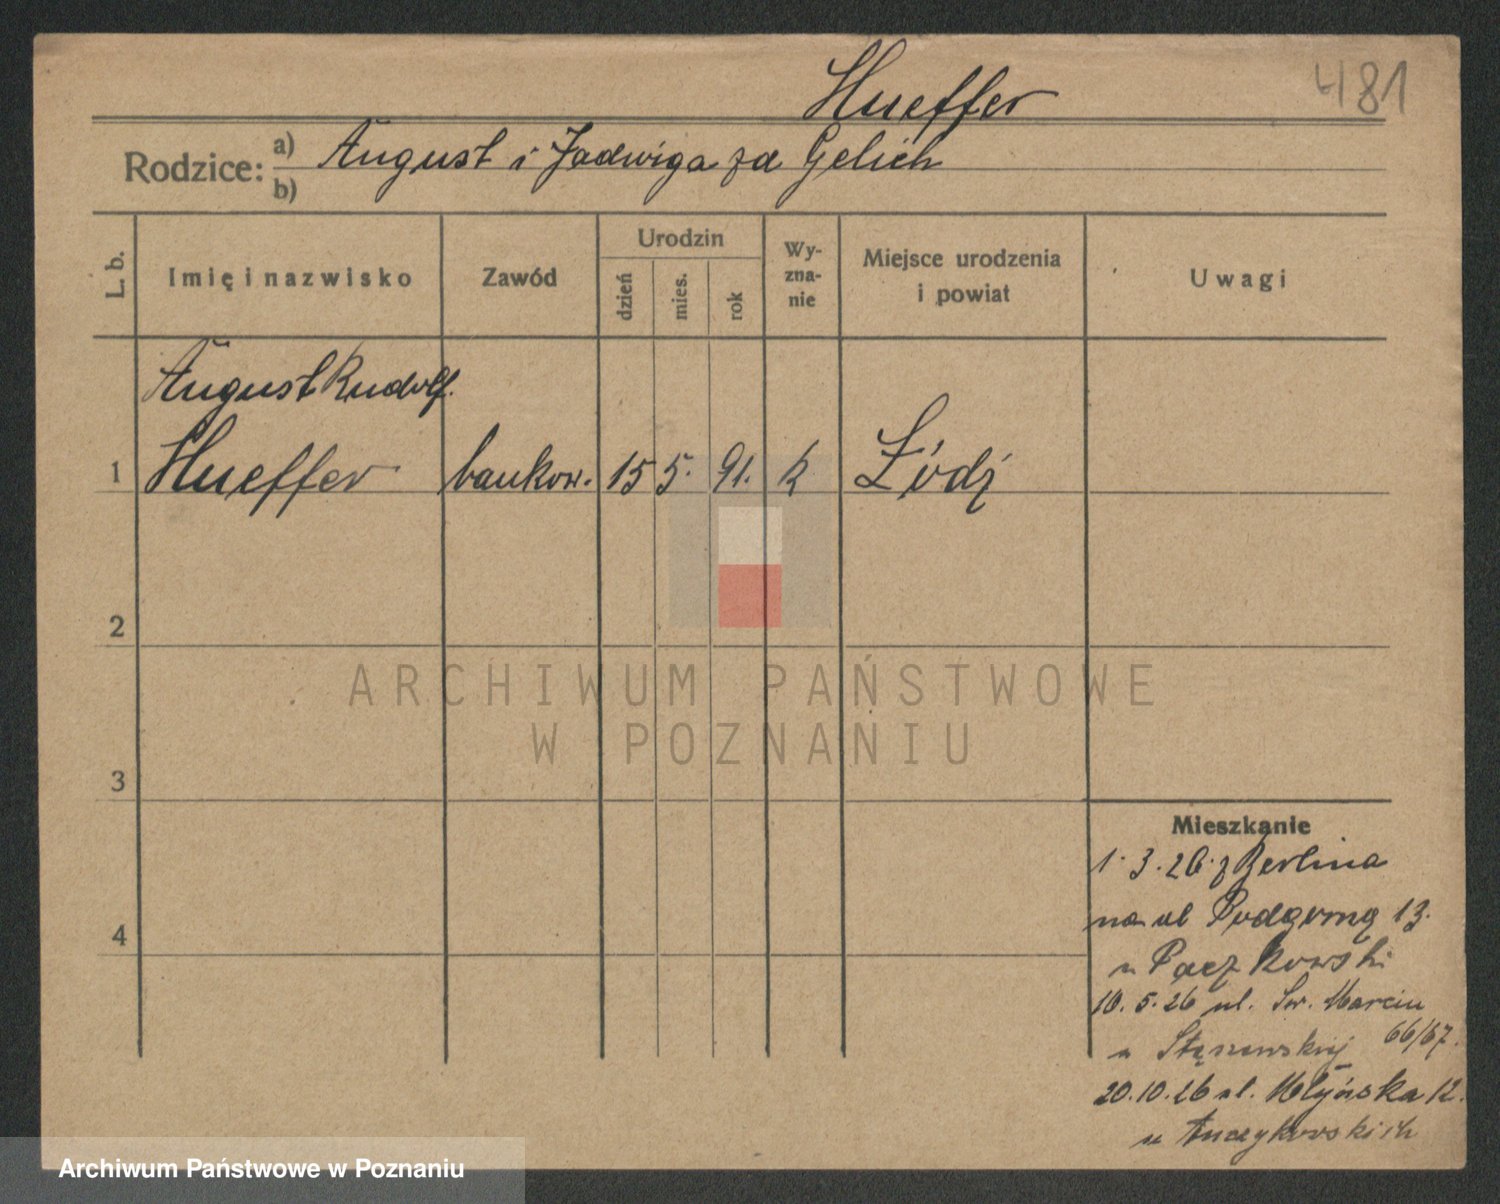 Hueffer
481
Rodzice: a) August i Jadwiga zd Gelich
b)
L. b.
Imię i nazwisko
Zawód
Urodzin
dzień
mies.
rok
Wy-
zna-
nie
Miejsce urodzenia
i powiat
Uwagi
August Rudolf.
1 Hueffer bankow. 15 5. 91. k Łódź
2
3
4
ARCHIWUM PAŃSTWOWE
W POZNANIU
Mieszkanie
1.3.26. z Berlina
na ul Podgórną 13.
u Pączkowski
10.5.26 ul. Św. Marcin
66/67.
u
20.10.26 ul. Młyńska 12.
u
Archiwum Państwowe w Poznaniu